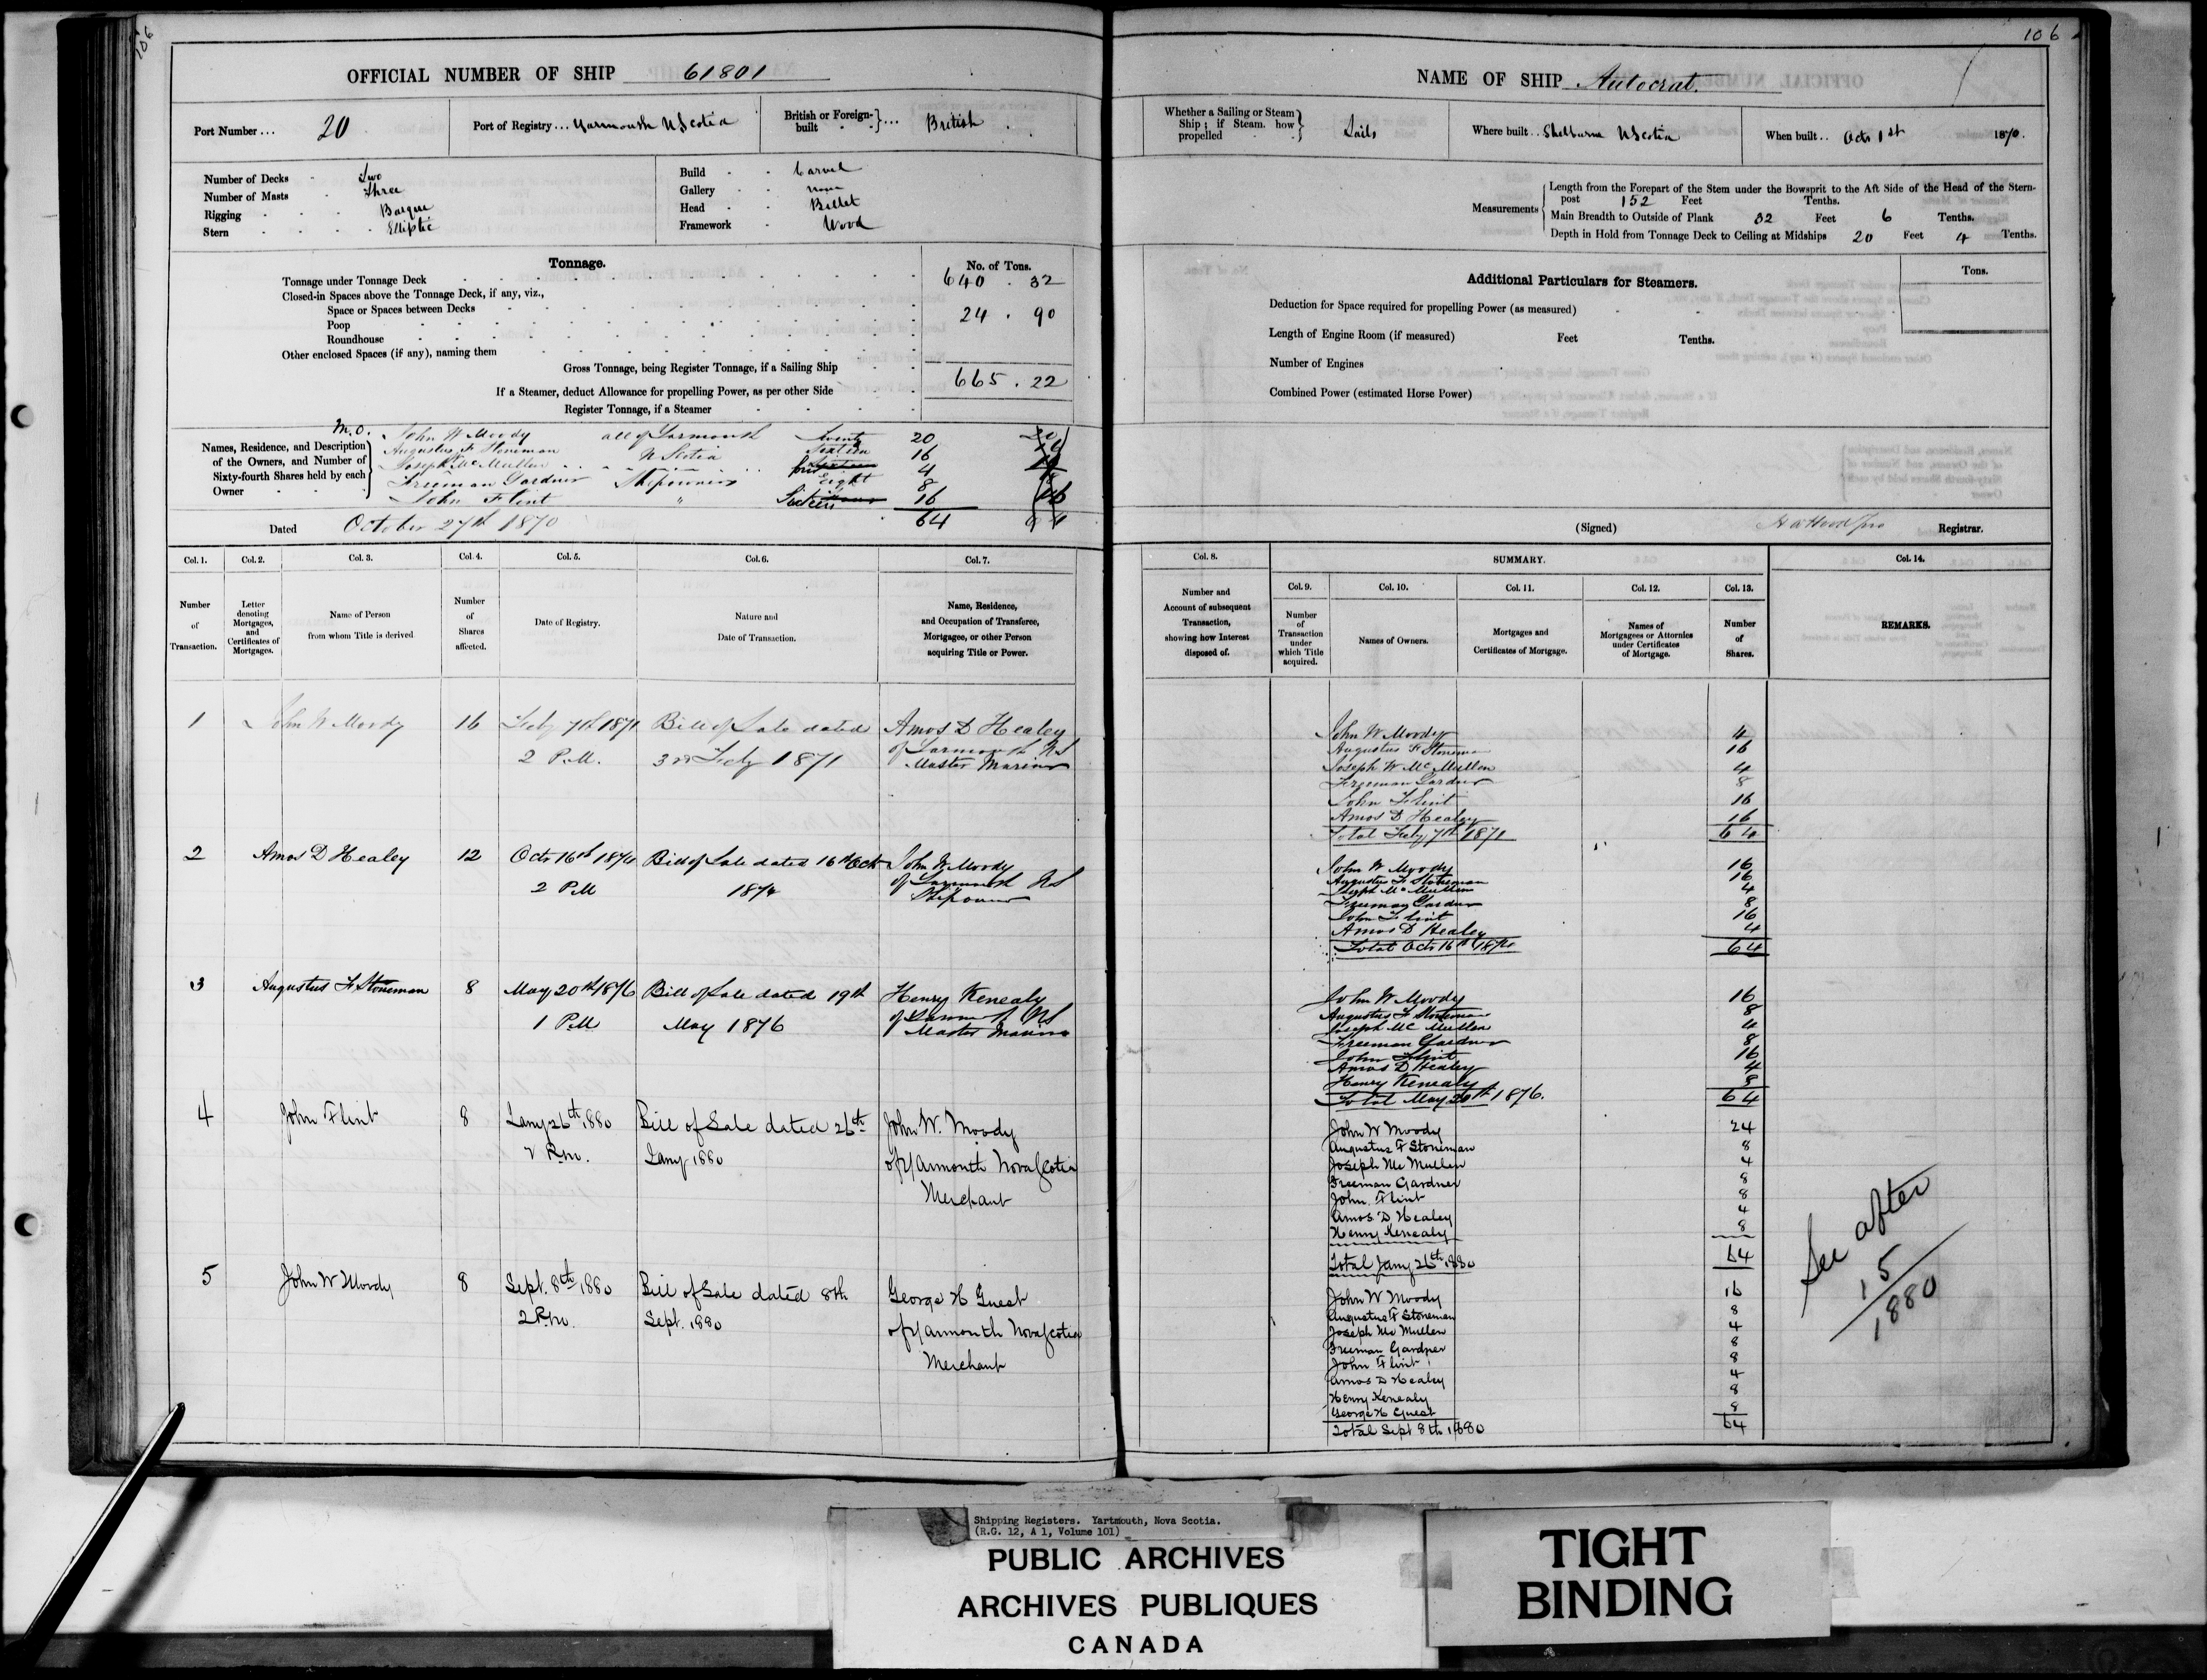 106
OFFICIAL NUMBER OF SHIP 61801
Port Number ... 20
Port of Registry ... Yarmouth N Scotia
British or Foreign-built } ... British
Number of Decks - Two
Number of Masts - Three
Rigging - Barque
Stern - Elliptic
Build - Carvel
Gallery - none
Head - Billet
Framework - Wood
Tonnage.
No. of Tons.
Tonnage under Tonnage Deck 640 . 32
Closed-in Spaces above the Tonnage Deck, if any, viz.,
Space or Spaces between Decks
Poop 24 . 90
Roundhouse
Other enclosed Spaces (if any), naming them
Gross Tonnage, being Register Tonnage, if a Sailing Ship 665 . 22
If a Steamer, deduct Allowance for propelling Power, as per other Side
Register Tonnage, if a Steamer
Names, Residence, and Description of the Owners, and Number of Sixty-fourth Shares held by each Owner
M.O. John W Moody all of Yarmouth Twenty 20
Augustus F Stoneman N Scotia Sixteen 16
Joseph McMullen four 4
Freeman Gardner Shipowners eight 8
John Flint " Sixteen 16
64
Dated October 27th 1870
Col. 1. Col. 2. Col. 3. Col. 4. Col. 5. Col. 6. Col. 7.
Number of Transaction.
Letter denoting Mortgages, and Certificates of Mortgages.
Name of Person from whom Title is derived.
Number of Shares affected.
Date of Registry.
Nature and Date of Transaction.
Name, Residence, and Occupation of Transferee, Mortgagee, or other Person acquiring Title or Power.
1 John W Moody 16 Feby 7th 1871 Bill of Sale dated Amos D Healey
2 P.M. 3rd Feby 1871 of Yarmouth NS
Master Mariner
2 Amos D Healey 12 Octr 16th 1874 Bill of Sale dated 16th Octr John W Moody
2 PM 1874 of Yarmouth NS
Shipowner
3 Augustus F Stoneman 8 May 20th 1876 Bill of Sale dated 19th Henry Kenealy
1 PM May 1876 of Yarmouth NS
Master Mariner
4 John Flint 8 Jany 26th 1880 Bill of Sale dated 26th John W. Moody
2 P.m. Jany 1880 of Yarmouth Nova Scotia
Merchant
5 John W Moody 8 Sept. 8th 1880 Bill of Sale dated 8th George H Guest
2 P.m. Sept. 1880 of Yarmouth Nova Scotia
Merchant
106
NAME OF SHIP Autocrat.
Whether a Sailing or Steam Ship; if Steam, how propelled } Sails
Where built .. Shelburne N Scotia
When built .. Octr 1st 1870.
Measurements
Length from the Forepart of the Stem under the Bowsprit to the Aft Side of the Head of the Stern-
post 152 Feet Tenths.
Main Breadth to Outside of Plank 32 Feet 6 Tenths.
Depth in Hold from Tonnage Deck to Ceiling at Midships 20 Feet 4 Tenths.
Additional Particulars for Steamers.
Tons.
Deduction for Space required for propelling Power (as measured)
Length of Engine Room (if measured) Feet Tenths.
Number of Engines
Combined Power (estimated Horse Power)
(Signed) Registrar.
Col. 8. SUMMARY. Col. 14.
Col. 9. Col. 10. Col. 11. Col. 12. Col. 13.
Number and Account of subsequent Transaction, showing how Interest disposed of.
Number of Transaction under which Title acquired.
Names of Owners.
Mortgages and Certificates of Mortgage.
Names of Mortgagees or Attornies under Certificates of Mortgage.
Number of Shares.
REMARKS.
John W Moody 4
Augustus F Stoneman 16
Joseph W McMullen 4
Freeman Gardner 8
John Flint 16
Amos D Healey 16
Total Feby 7th 1871 64
John W Moody 16
Augustus F Stoneman 16
Joseph McMullen 4
Freeman Gardner 8
John Flint 16
Amos D Healey 4
Total Octr 16th 1874 64
John W Moody 16
Augustus F Stoneman 8
Joseph McMullen 4
Freeman Gardner 8
John Flint 16
Amos D Healey 4
Henry Kenealy 8
Total May 20th 1876. 64
John W Moody 24
Augustus F Stoneman 8
Joseph McMullen 4
Freeman Gardner 8
John Flint 8
Amos D Healey 4
Henry Kenealy 8
Total Jany 26th 1880 64
John W Moody 16
Augustus F Stoneman 8
Joseph McMullen 4
Freeman Gardner 8
John Flint 8
Amos D Healey 4
Henry Kenealy 8
George H Guest 8
Total Sept 8th 1880 64
See after
15
1880
Shipping Registers. Yartmouth, Nova Scotia.
(R.G. 12, A 1, Volume 101)
PUBLIC ARCHIVES
ARCHIVES PUBLIQUES
CANADA
TIGHT
BINDING